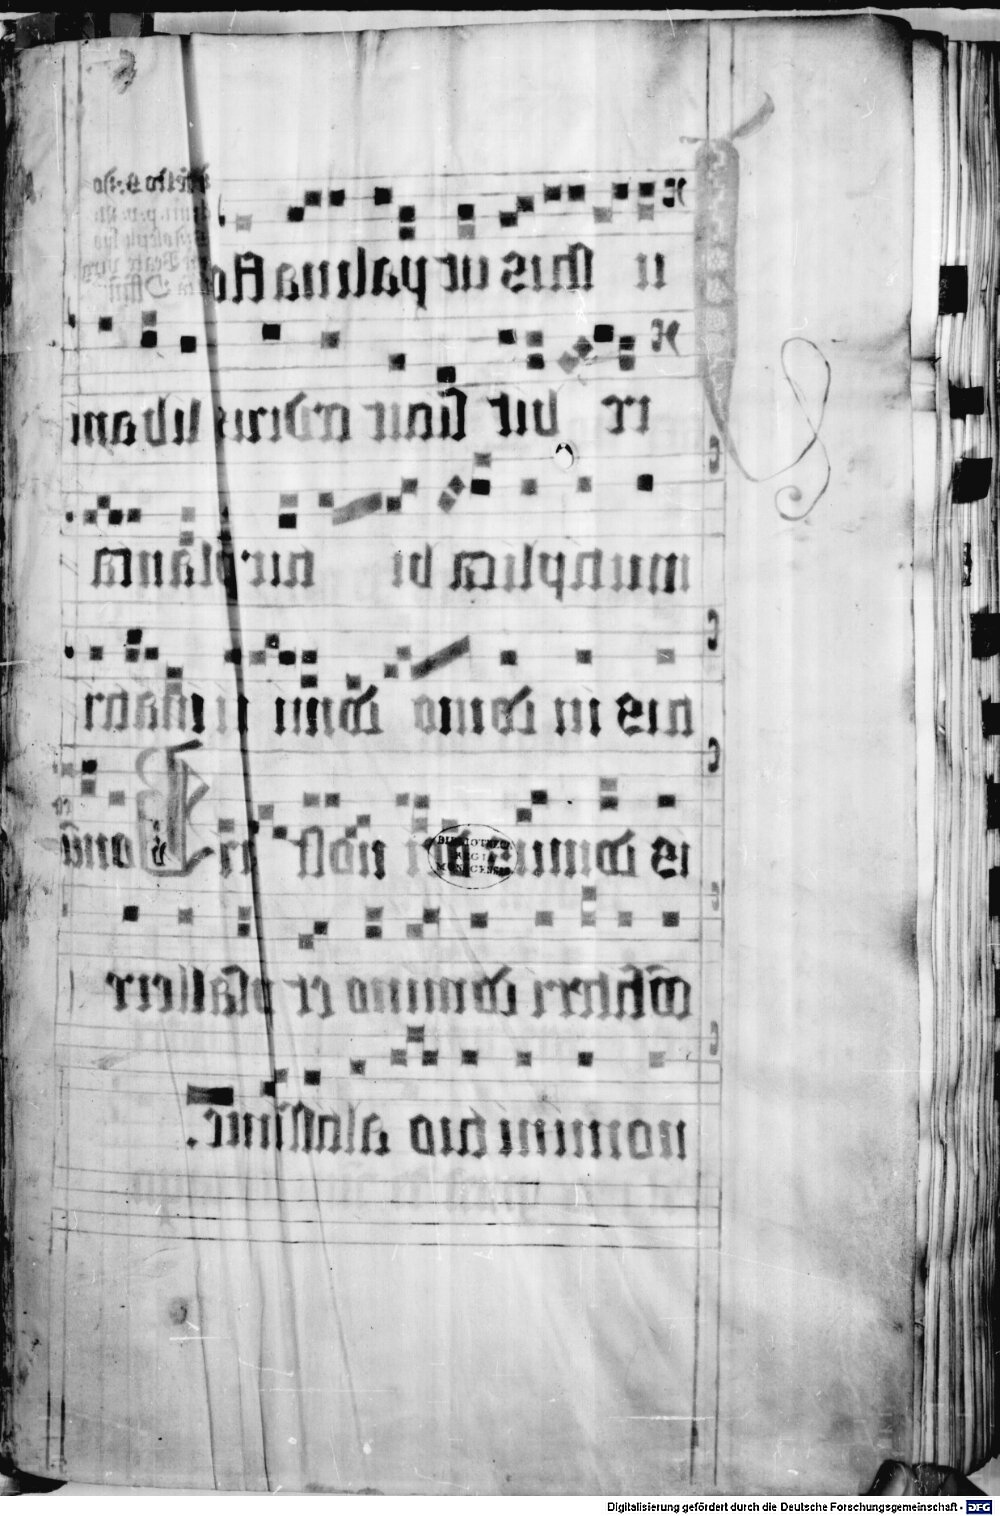 u stus ut palma flo
re bit sicut cedrus libani
multiplica bi tur planta
tis in domo domi ni in atri
is domus dei nostri Bonū
cōfiteri domino et psallere
nomini tuo altissime.
BIBLIOTHECA
REGIA
MONACENSIS
Digitalisierung gefördert durch die Deutsche Forschungsgemeinschaft - DFG